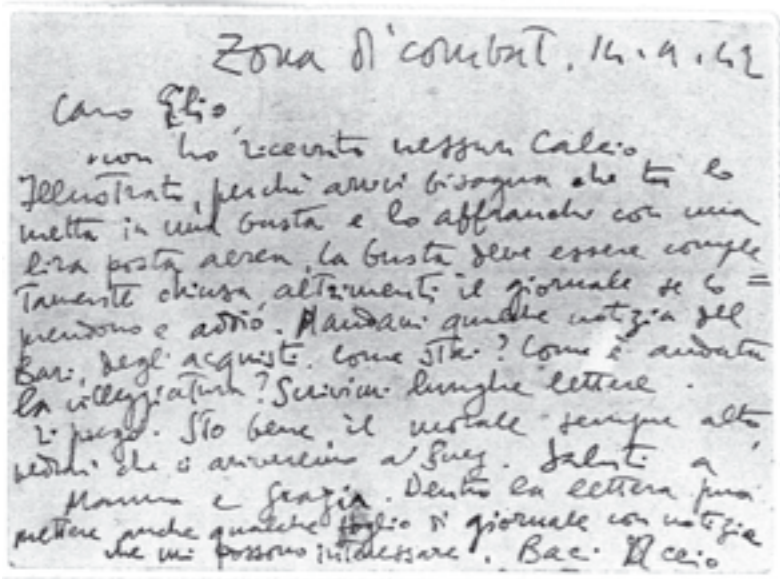 Zona di combatt. 14.9.42
Caro Elio,
non ho ricevuto nessun Calcio
Illustrato, perchè arrivi bisogna che tu lo
metta in una busta e lo affranchi con una
lira posta aerea, la busta deve essere comple
tamente chiusa, altrimenti il giornale se lo =
prendono e addio. Mandami qualche notizia del
Bari, degli acquisti. Come stai? Come è andata
la villeggiatura? Scrivimi lunghe lettere.
ti prego. Sto bene il morale sempre alto
vedrai che ci arriveremo a Suez. Saluti a
Mamma e Grazia. Dentro la lettera puoi
mettere anche qualche foglio di giornale con notizie
che mi possono interessare. Baci